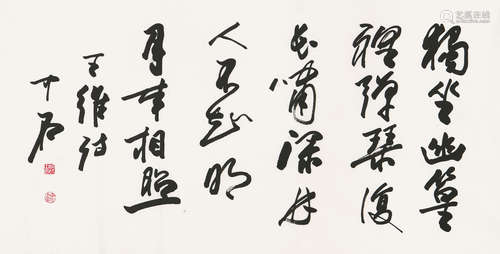 獨坐幽篁
裡彈琴復
長嘯深林
人不知明
月來相照
王維詩